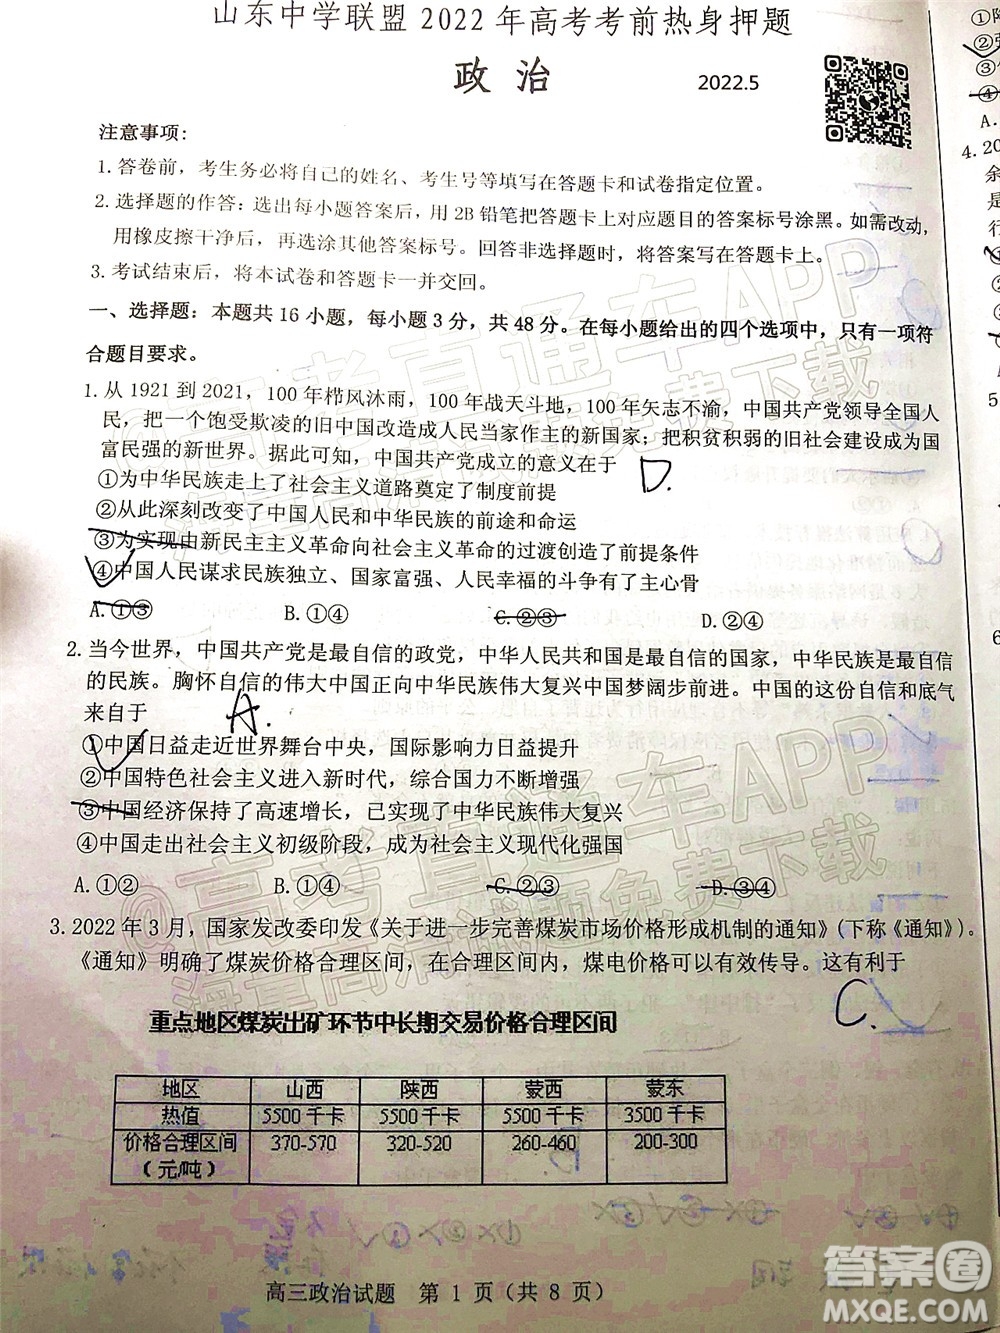 山东中学联盟 2022 年高考考前热身押题
政 治 2022.5
注意事项：
1. 答卷前，考生务必将自己的姓名、考生号等填写在答题卡和试卷指定位置。
2. 选择题的作答：选出每小题答案后，用 2B 铅笔把答题卡上对应题目的答案标号涂黑。如需改动，
用橡皮擦干净后，再选涂其他答案标号。回答非选择题时，将答案写在答题卡上。
3. 考试结束后，将本试卷和答题卡一并交回。
一、选择题：本题共 16 小题，每小题 3 分，共 48 分。在每小题给出的四个选项中，只有一项符
合题目要求。
1. 从 1921 到 2021，100 年栉风沐雨，100 年战天斗地，100 年矢志不渝，中国共产党领导全国人
民，把一个饱受欺凌的旧中国改造成人民当家作主的新国家；把积贫积弱的旧社会建设成为国
富民强的新世界。据此可知，中国共产党成立的意义在于
D.
①为中华民族走上了社会主义道路奠定了制度前提
②从此深刻改变了中国人民和中华民族的前途和命运
③为实现由新民主主义革命向社会主义革命的过渡创造了前提条件
④中国人民谋求民族独立、国家富强、人民幸福的斗争有了主心骨
A.①③ B.①④ C.②③ D.②④
2. 当今世界，中国共产党是最自信的政党，中华人民共和国是最自信的国家，中华民族是最自信
的民族。胸怀自信的伟大中国正向中华民族伟大复兴中国梦阔步前进。中国的这份自信和底气
来自于
A.
①中国日益走近世界舞台中央，国际影响力日益提升
②中国特色社会主义进入新时代，综合国力不断增强
③中国经济保持了高速增长，已实现了中华民族伟大复兴
④中国社会主义初级阶段，成为社会主义现代化强国
A.①② B.①④ C.②③ D.③④
3. 2022 年 3 月，国家发改委印发《关于进一步完善煤炭市场价格形成机制的通知》（下称《通知》）。
《通知》明确了煤炭价格合理区间，在合理区间内，煤电价格可以有效传导。这有利于
C.
重点地区煤炭出矿环节中长期交易价格合理区间
地区 山西 陕西 蒙西 蒙东
热值 5500 千卡 5500 千卡 5500 千卡 3500 千卡
价格合理区间 370-570 320-520 260-460 200-300
（元/吨）
高三政治试题 第 1 页（共 8 页）
@高考直通车APP
海量高清试题免费下载
@高考直通车APP
海量高清试题免费下载
答案圈
MXQE.COM